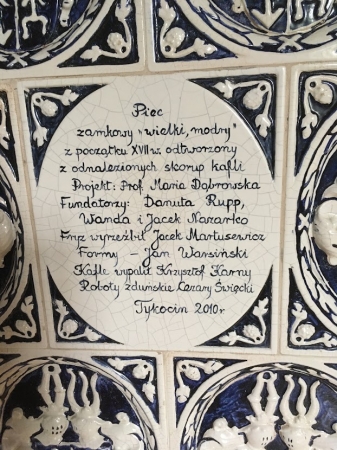 Piec
zamkowy "wielki, modry"
z początku XVII w. odtworzony
z odnalezionych skorup kafli
Projekt: Prof. Maria Dąbrowska
Fundatorzy: Danuta Rupp,
Wanda i Jacek Nazarko
Fryz wyrzeźbił Jacek Martusewicz
Formy – Jan Warsiński
Kafle wypalił Krzysztof Karny
Roboty zduńskie Cezary Święcki
Tykocin 2010 r